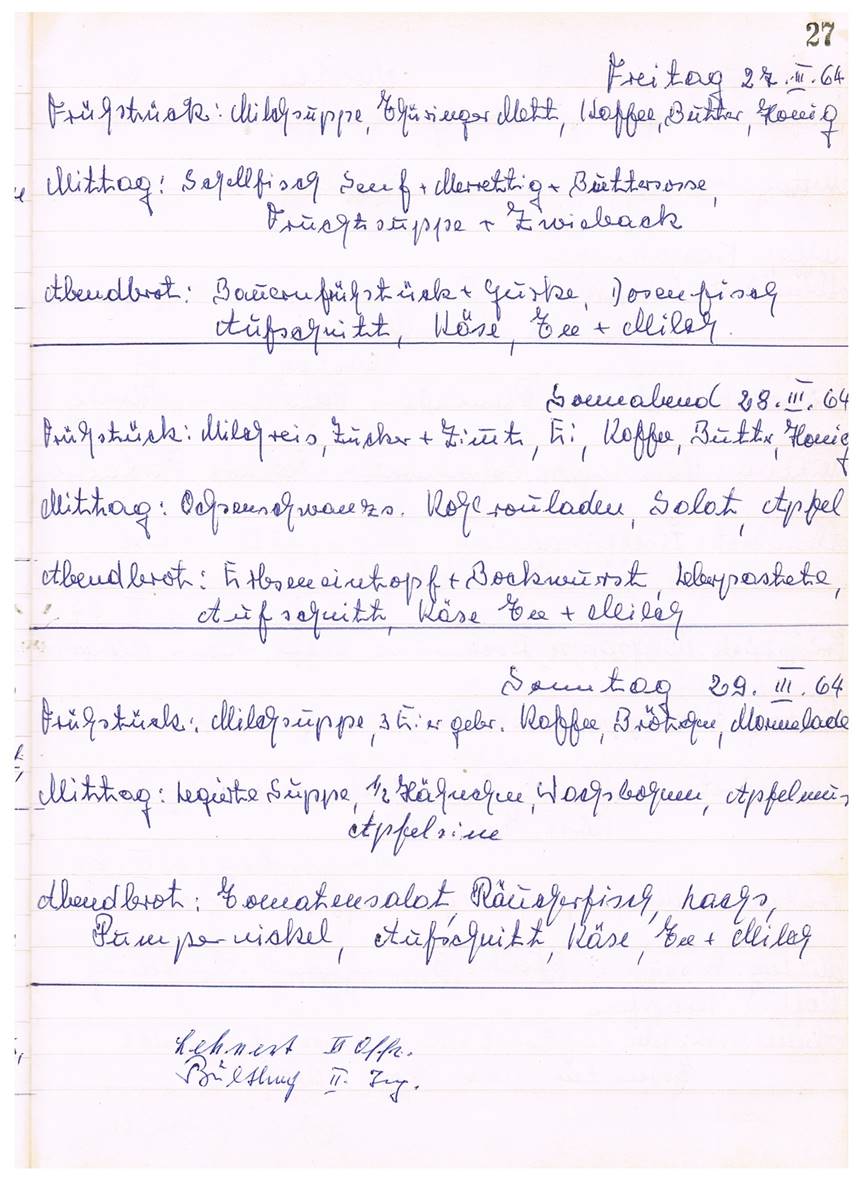 27
Freitag 27. III. 64
Frühstück: Milchsuppe, Thüringer Mett, Kaffee, Butter, Honig
Mittag: Schellfisch Senf + Merrettig + Buttersosse,
Fruchtsuppe + Zwieback
Abendbrot: Bauernfrühstück + Gurke, Dosenfisch
Aufschnitt, Käse, Tee + Milch.
Sonnabend 28. III. 64
Frühstück: Milchreis, Zucker + Zimt, Ei, Kaffee, Butter, Honig
Mittag: Ochsenschwanzs. Kohlrouladen, Salat, Apfel
Abendbrot: Erbseneintopf + Bockwurst, Leberpastete,
Aufschnitt, Käse Tee + Milch
Sonntag 29. III. 64
Frühstück: Milchsuppe, 3 Eier gebr. Kaffee, Brötchen, Marmelade
Mittag: Legierte Suppe, 1/2 Hähnchen, Wachsbohnen, Apfelmus
Apfelsine
Abendbrot: Tomatensalat, Räucherfisch, Lachs,
Pumpernickel, Aufschnitt, Käse, Tee + Milch
Lehnert II Offz.
II. Ing.